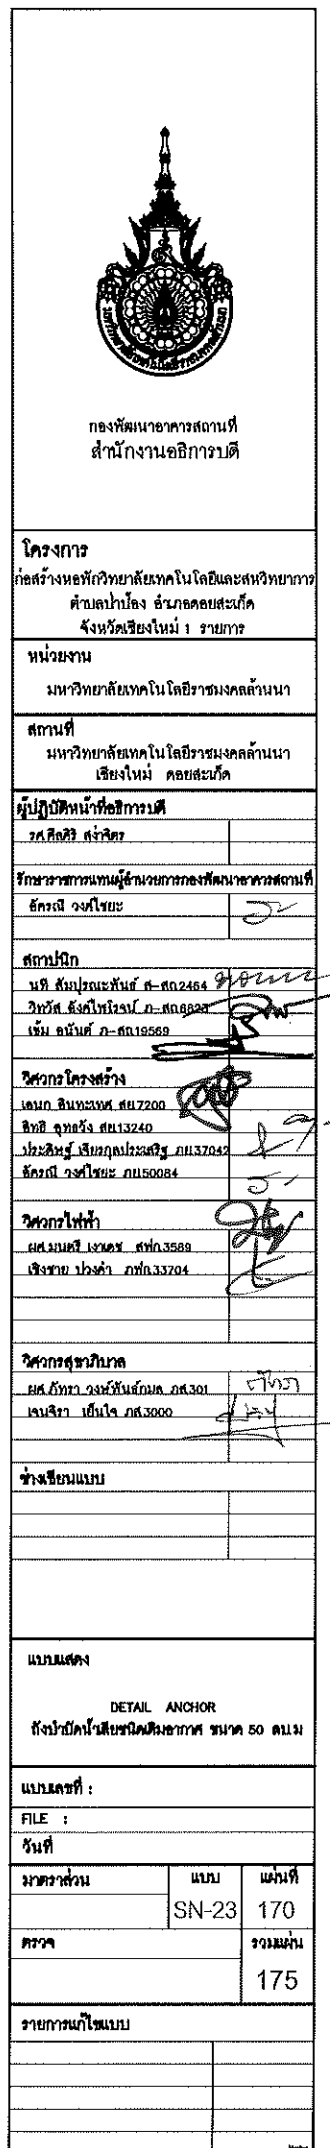 กองพัฒนาอาคารสถานที่
สำนักงานอธิการบดี
โครงการ
ก่อสร้างหอพักวิทยาลัยเทคโนโลยีและสหวิทยาการ
ตำบลป่าป้อง อำเภอดอยสะเก็ด
จังหวัดเชียงใหม่ 1 รายการ
หน่วยงาน
มหาวิทยาลัยเทคโนโลยีราชมงคลล้านนา
สถานที่
มหาวิทยาลัยเทคโนโลยีราชมงคลล้านนา
เชียงใหม่ ดอยสะเก็ด
ผู้ปฏิบัติหน้าที่อธิการบดี
รศ.ศีลศิริ สง่าจิตร
รักษาราชการแทนผู้อำนวยการกองพัฒนาอาคารสถานที่
อัครณี วงศ์ไชยะ
สถาปนิก
นที สัมปุรณะพันธ์ ส-สถ.2464
วิทวัส อังศ์ไพโรจน์ ภ-สถ.8823
เข้ม อนันต์ ภ-สถ19569
วิศวกรโครงสร้าง
เอนก อินทะเทศ สย.7200
สิทธิ อุทธวัง สย.13240
ประดิษฐ์ เจียรกุลประเสริฐ ภย.37042
อัครณี วงศ์ไชยะ ภย.50084
วิศวกรไฟฟ้า
ผศ.มนตรี เงาเดช สฟก.3589
เชิงชาย ปวงคำ ภฟก.33704
วิศวกรสุขาภิบาล
ผศ.ภัทรา วงษ์พันธ์กมล ภส.301
เจนจิรา เย็นใจ ภส.3000
ช่างเขียนแบบ
แบบแสดง
DETAIL ANCHOR
ถังบำบัดน้ำเสียชนิดเติมอากาศ ขนาด 50 ลบ.ม
แบบเลขที่ :
FILE :
วันที่
มาตราส่วน แบบ แผ่นที่
SN-23 170
ตรวจ รวมแผ่น
175
รายการแก้ไขแบบ